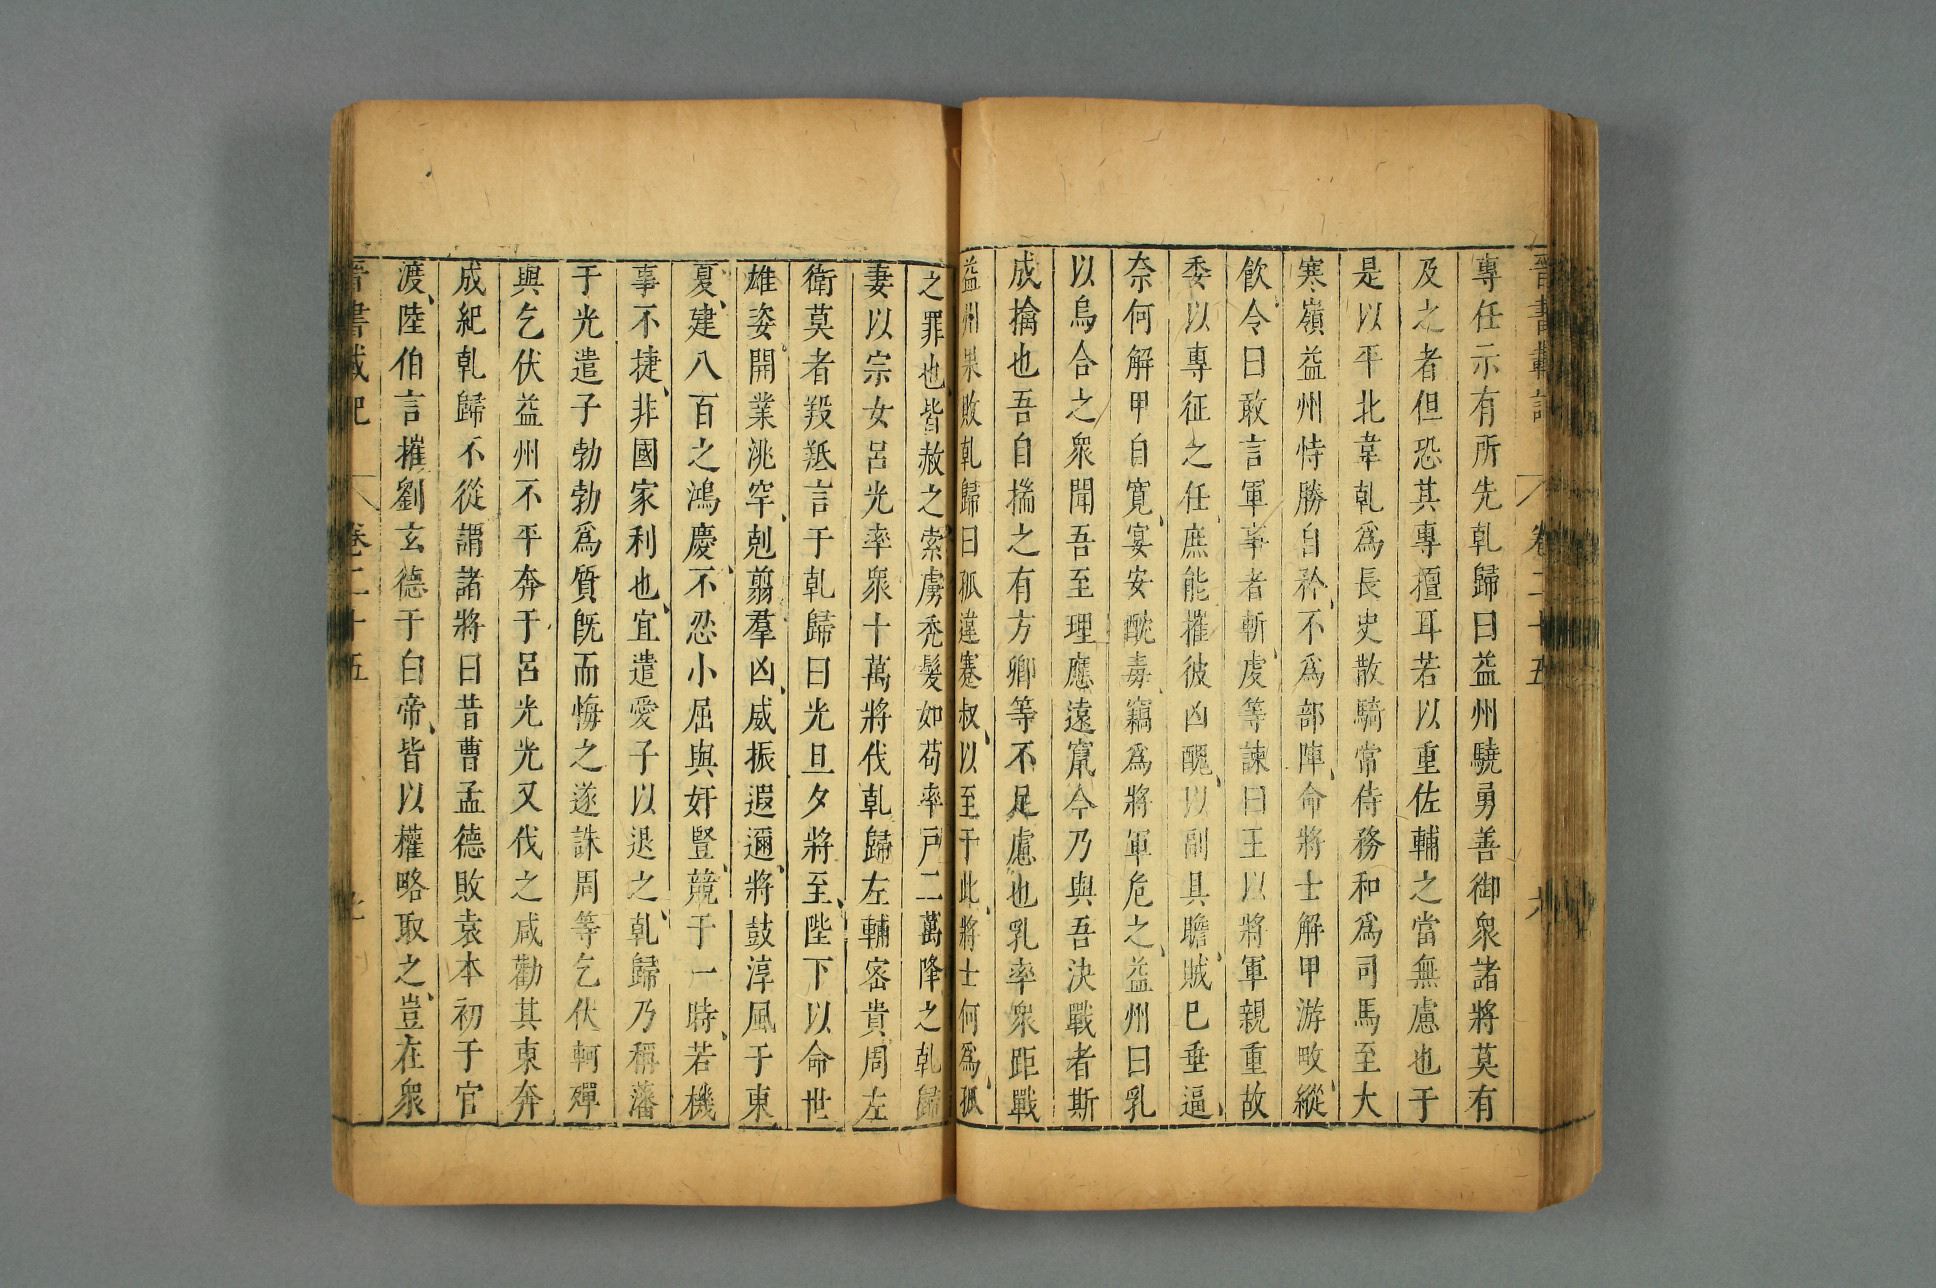 晉書載記 卷二十五
專任示有所先乹歸曰益州驍勇善御衆諸將莫有
及之者但恐其專擅耳若以重佐輔之當無慮也于
是以平北韋乹爲長史散騎常侍務和爲司馬至大
寒嶺益州恃勝自矜不爲部陣命將士解甲游畋縱
飲令曰敢言軍事者斬虔等諫曰王以將軍親重故
委以專征之任庶能摧彼凶醜以副具瞻賊巳垂逼
奈何解甲自寛宴安酖毒竊爲將軍危之益州曰乳
以烏合之衆聞吾至理應遠竄今乃與吾決戰者斯
成擒也吾自揣之有方卿等不足慮也乳率衆距戰
益州果敗乹歸曰孤違蹇叔以至于此將士何爲孤
之罪也皆赦之索虜禿髮如苟率戸二萬降之乹歸
妻以宗女呂光率衆十萬將伐乹歸左輔密貴周左
衛莫者羖羝言于乹歸曰光旦夕將至陛下以命世
雄姿開業洮罕剋翦羣凶威振遐邇將鼓淳風于東
夏建八百之鴻慶不忍小屈與奸豎競于一時若機
事不捷非國家利也宜遣愛子以退之乹歸乃稱藩
于光遣子勃勃爲質旣而悔之遂誅周等乞伏軻殫
與乞伏益州不平奔于呂光光又伐之咸勸其東奔
成紀乹歸不從謂諸將曰昔曹孟德敗袁本初于官
渡陸伯言摧劉玄德于白帝皆以權略取之豈在衆
晉書載記 卷二十五